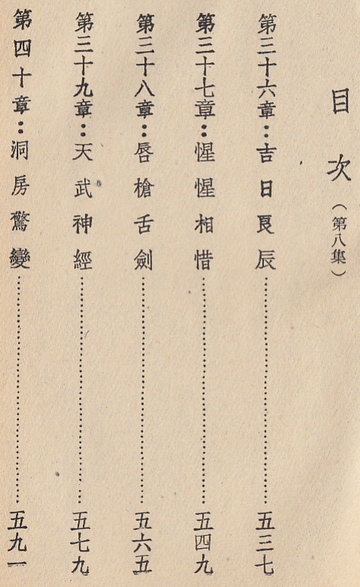 目次（第八集）
第三十六章：吉日良辰………五三七
第三十七章：惺惺相惜………五四九
第三十八章：唇槍舌劍………五六五
第三十九章：天武神經………五七九
第四十章：洞房驚變………五九一